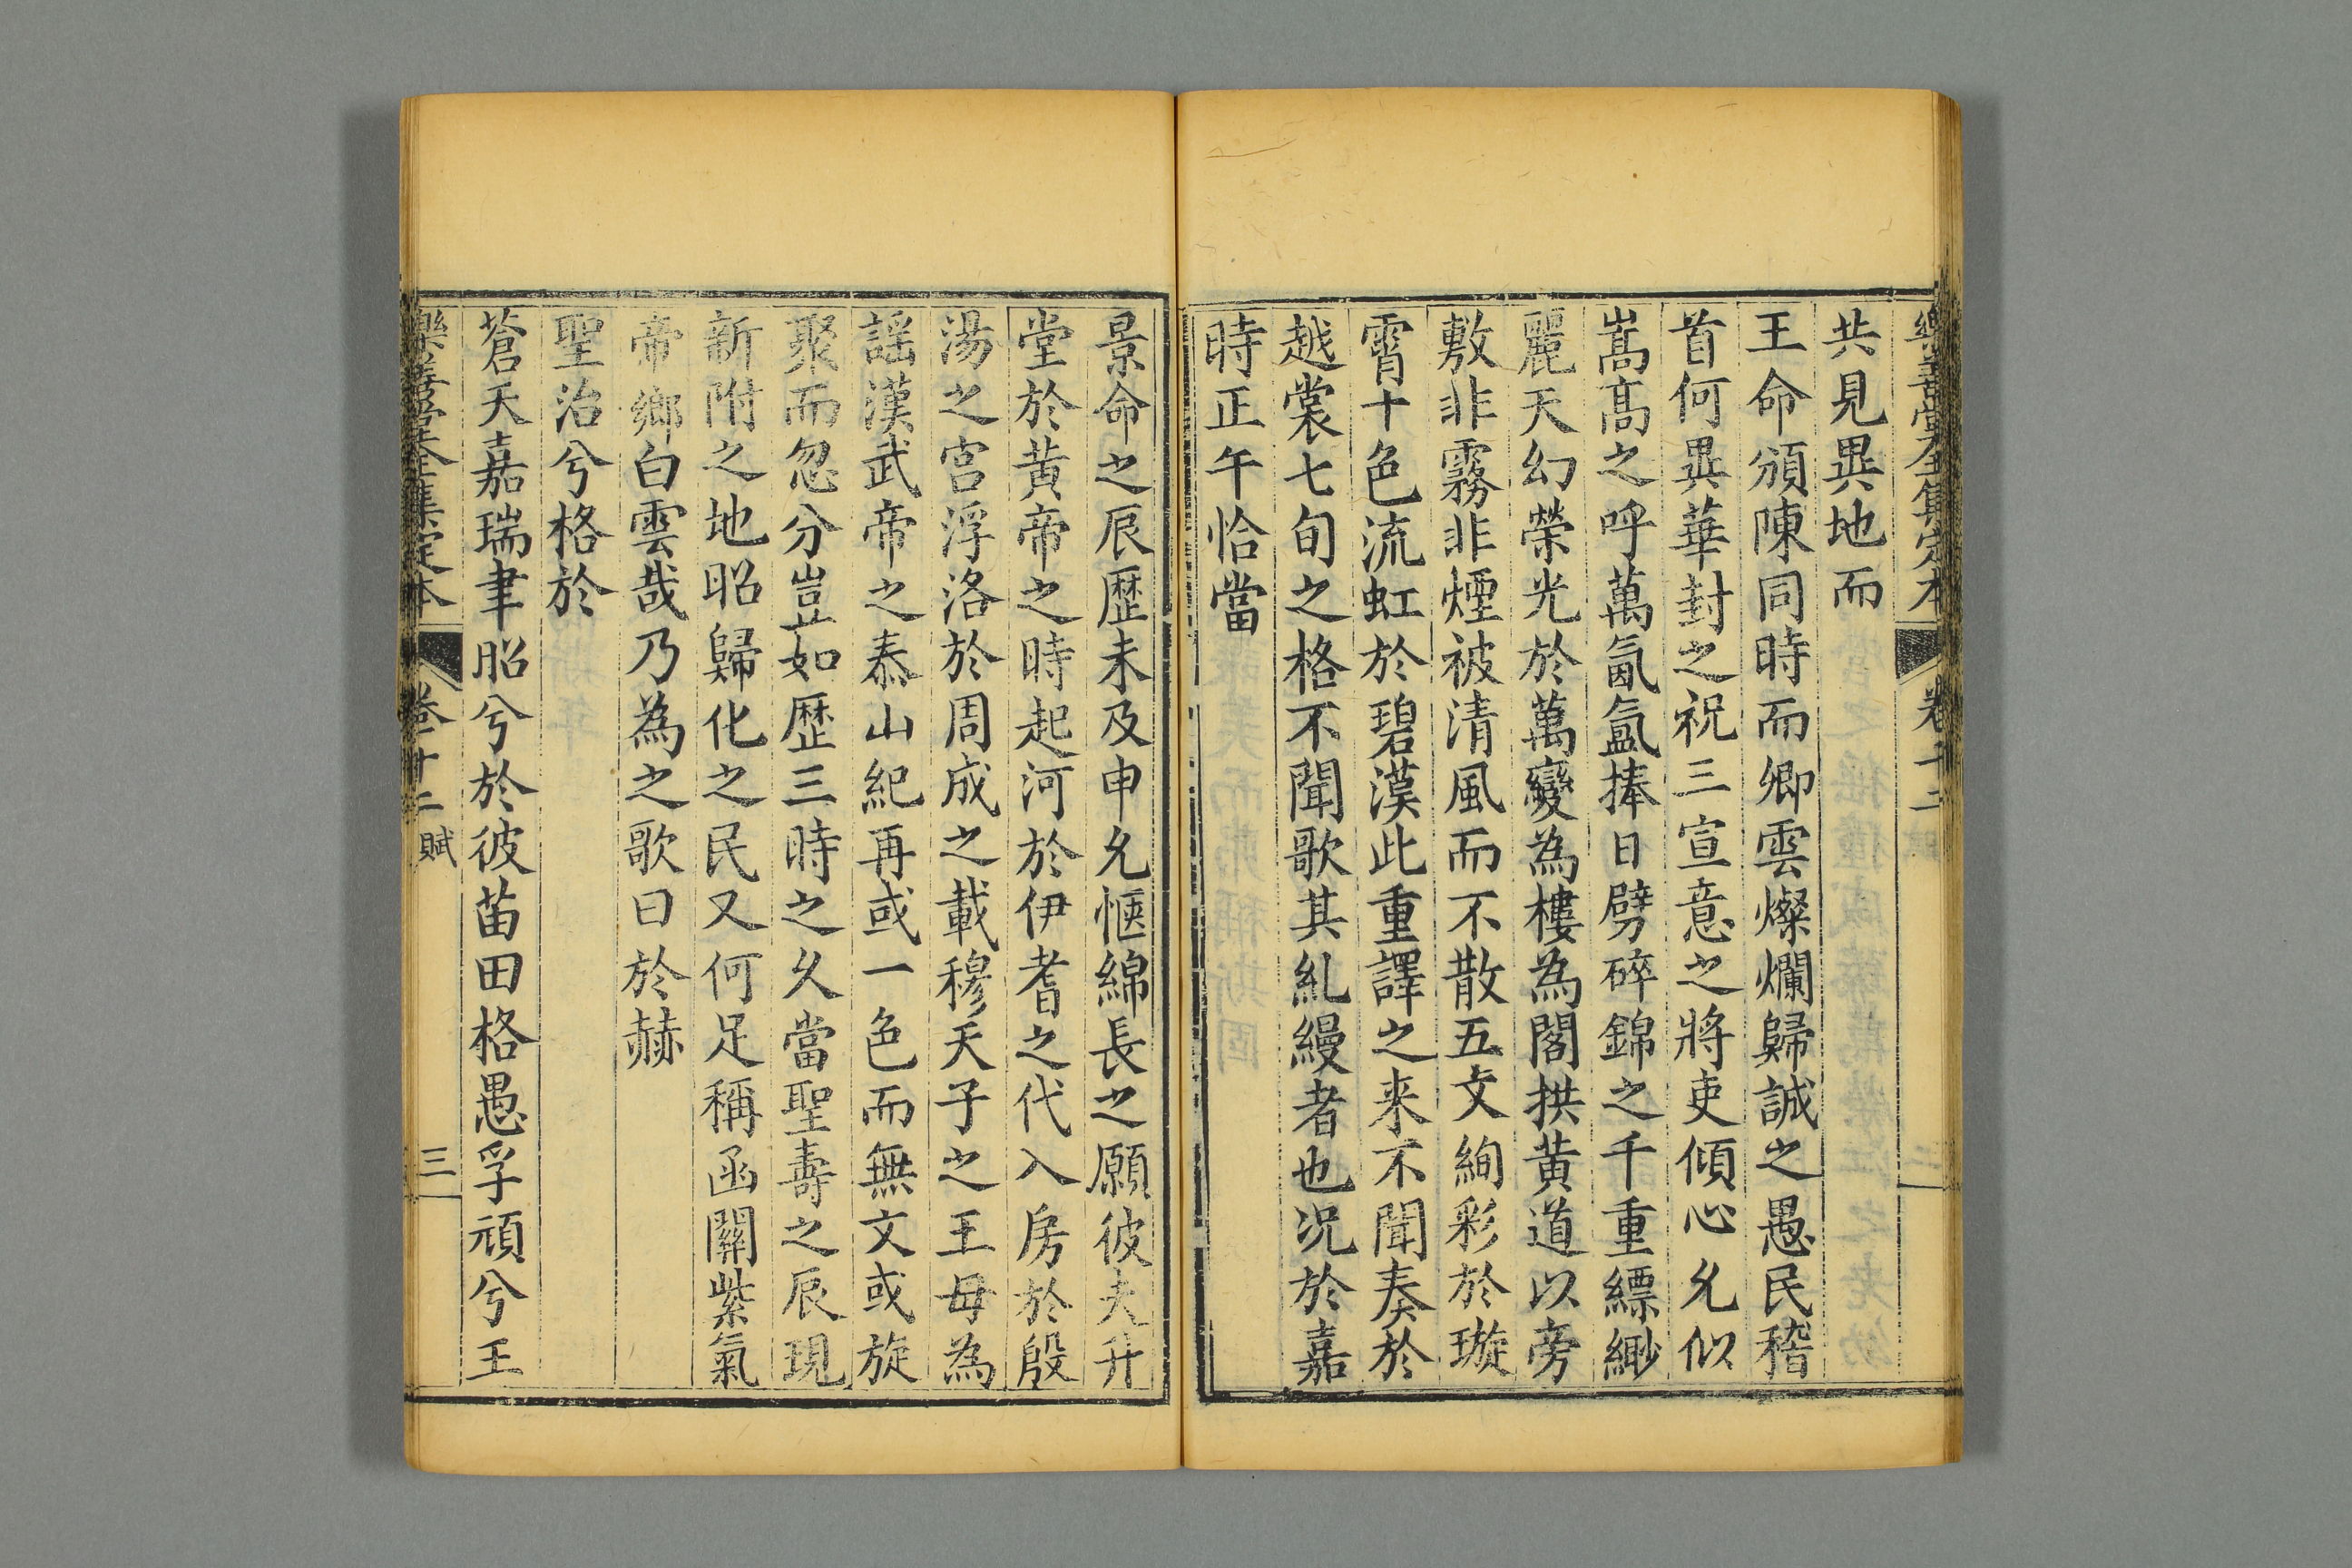 樂善堂全集定本 卷十二
共見異地而
王命頒陳同時而卿雲燦爛歸誠之愚民稽
首何異華封之祝三宣意之將吏傾心允似
嵩高之呼萬氤氳捧日劈碎錦之千重縹緲
麗天幻榮光於萬變為樓為閣拱黃道以旁
敷非霧非煙被清風而不散五文絢彩於璇
霄十色流虹於碧漢此重譯之来不聞奏於
越裳七旬之格不聞歌其糺縵者也况於嘉
時正午恰當
景命之辰歷未及申允愜綿長之願彼夫升
堂於黃帝之時起河於伊耆之代入房於殷
湯之宮浮洛於周成之載穆天子之王母為
謡漢武帝之泰山紀再或一色而無文或旋
聚而忽分豈如歷三時之久當聖壽之辰現
新附之地昭歸化之民又何足稱函關紫氣
帝鄉白雲哉乃為之歌曰於赫
聖治兮格於
蒼天嘉瑞聿昭兮於彼苗田格愚孚頑兮王
樂善堂全集定本 卷十二 賦 三